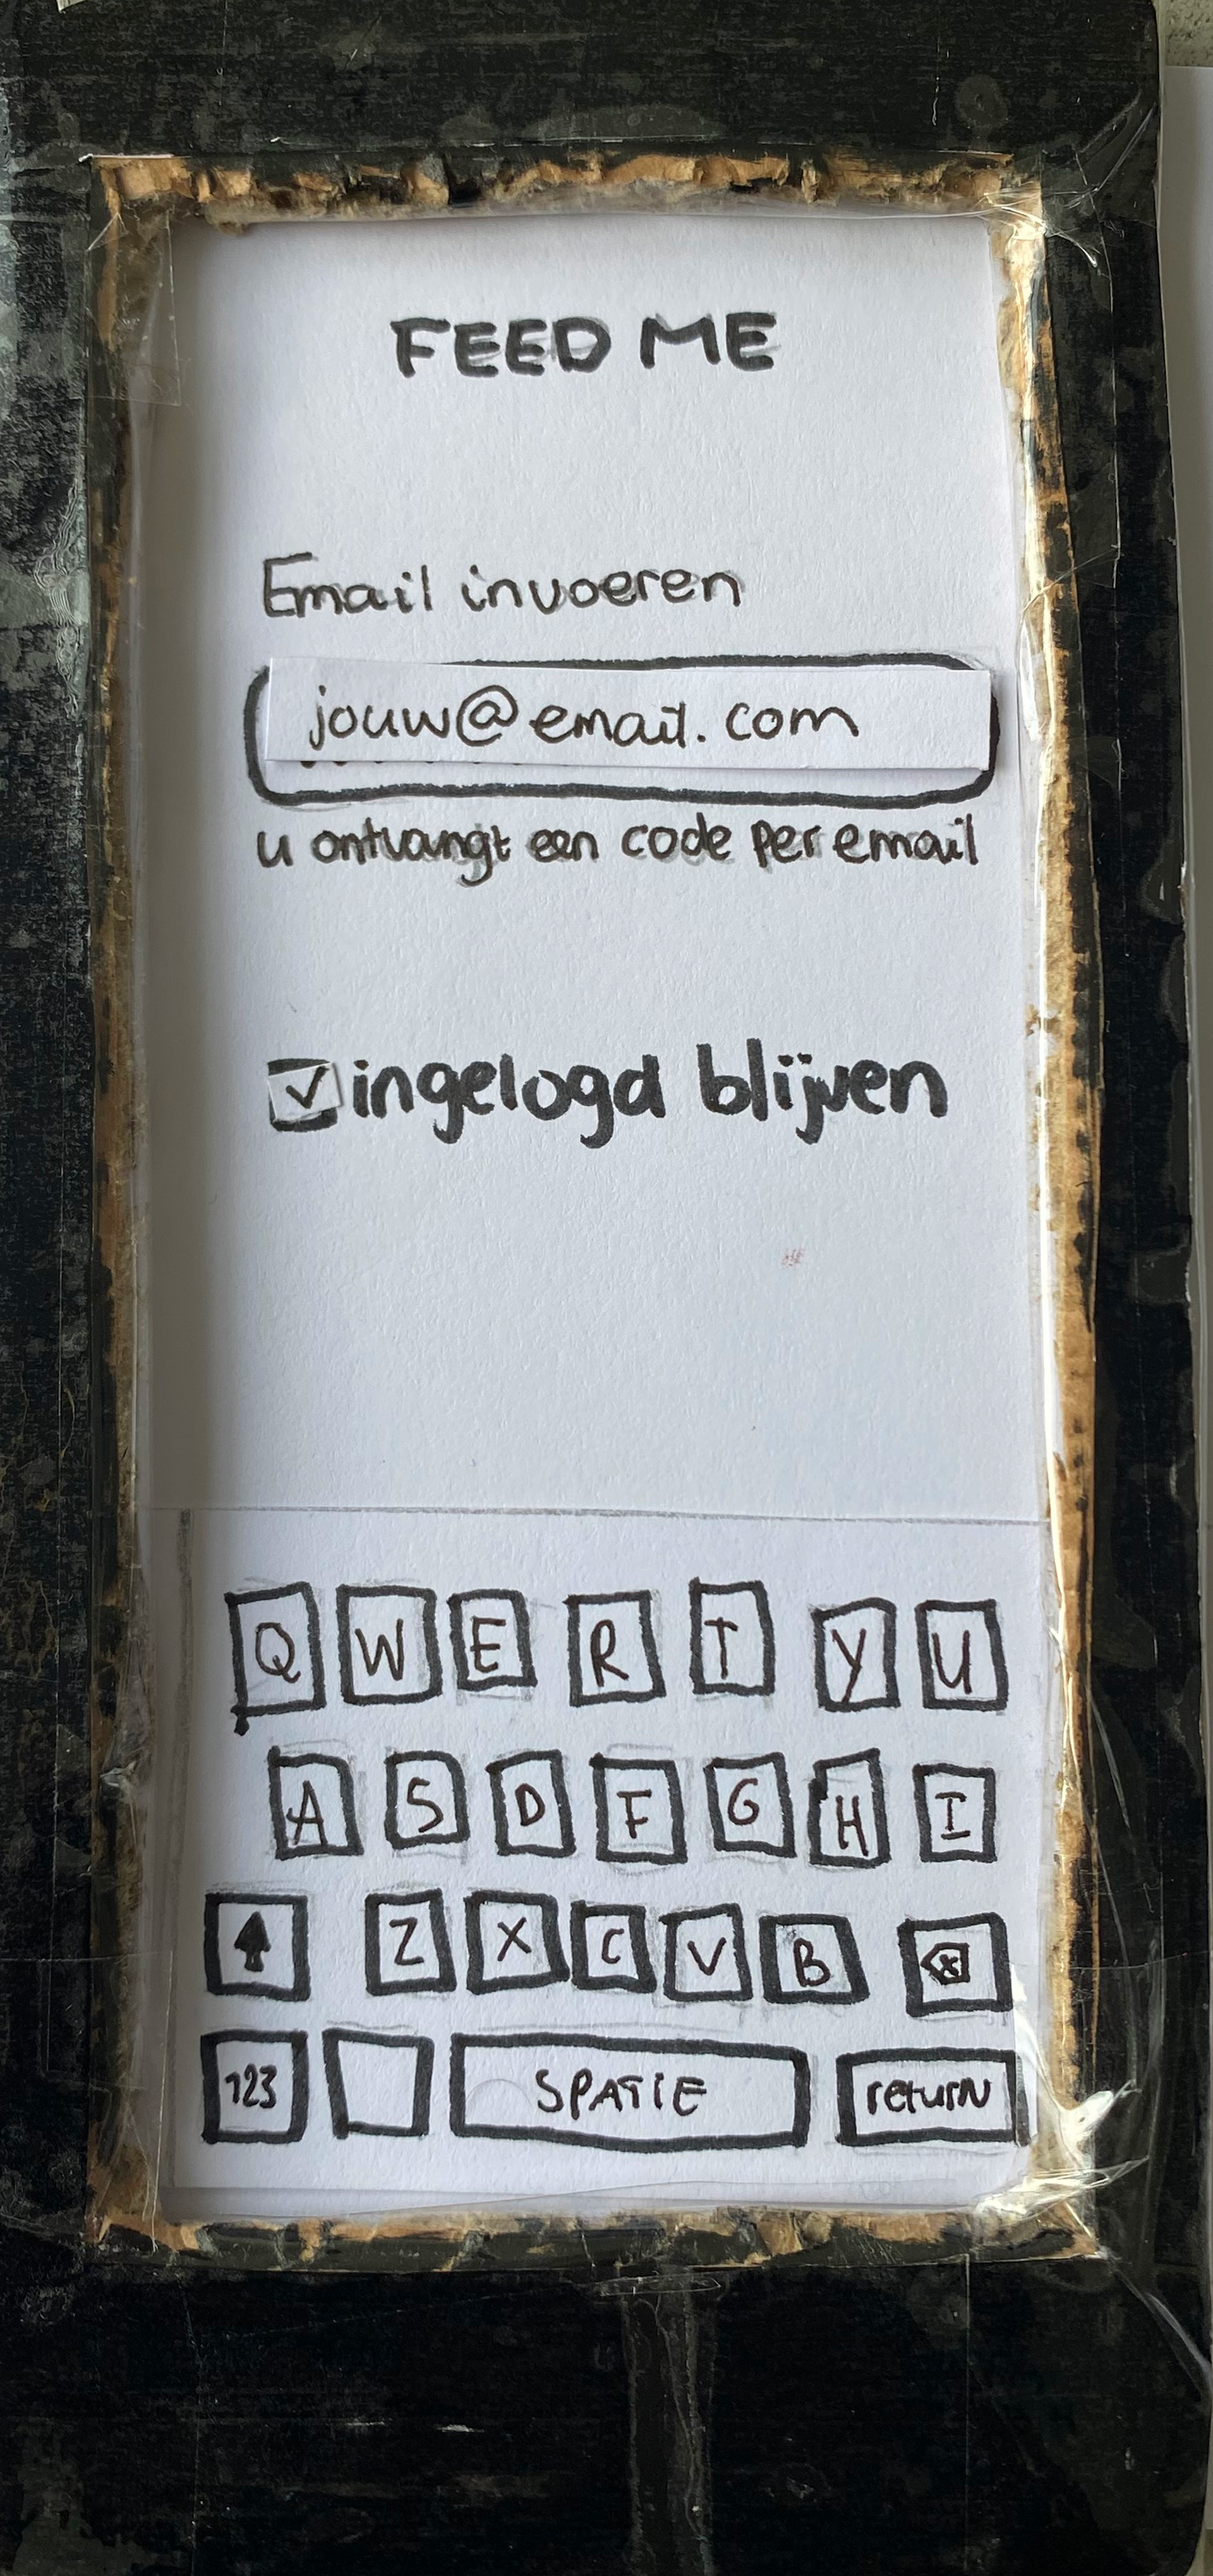 FEED ME
Email invoeren
jouw@email.com
u ontvangt een code per email
ingelogd blijven
Q W E R T Y U
A S D F G H I
Z X C V B
123 SPATIE return